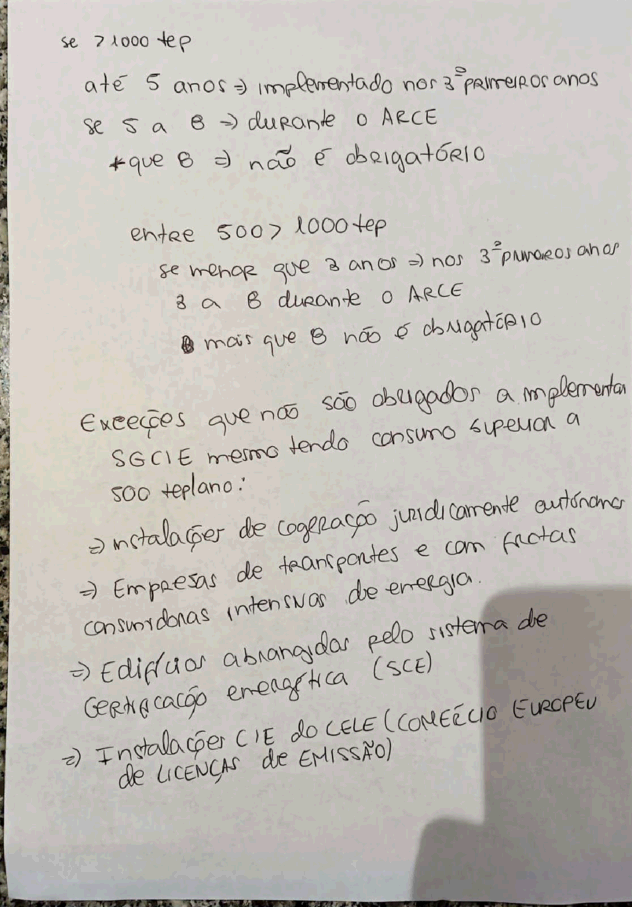 se > 1000 tep
até 5 anos => implementado nos 3ºs primeiros anos
se 5 a 8 => durante o ARCE
+ que 8 => não é obrigatório
entre 500 > 1000 tep
se menor que 3 anos => nos 3ºs primeiros anos
3 a 8 durante o ARCE
mais que 8 não é obrigatório
Exceções que não são obrigados a implementar
SGCIE mesmo tendo consumo superior a
500 tep/ano:
=> Instalações de cogeração juridicamente autónomas
=> Empresas de transportes e com frotas
consumidoras intensivas de energia.
=> Edifícios abrangidos pelo sistema de
Certificação energética (SCE)
=> Instalações CIE do CELE (COMÉRCIO EUROPEU
de LICENÇAS de EMISSÃO)